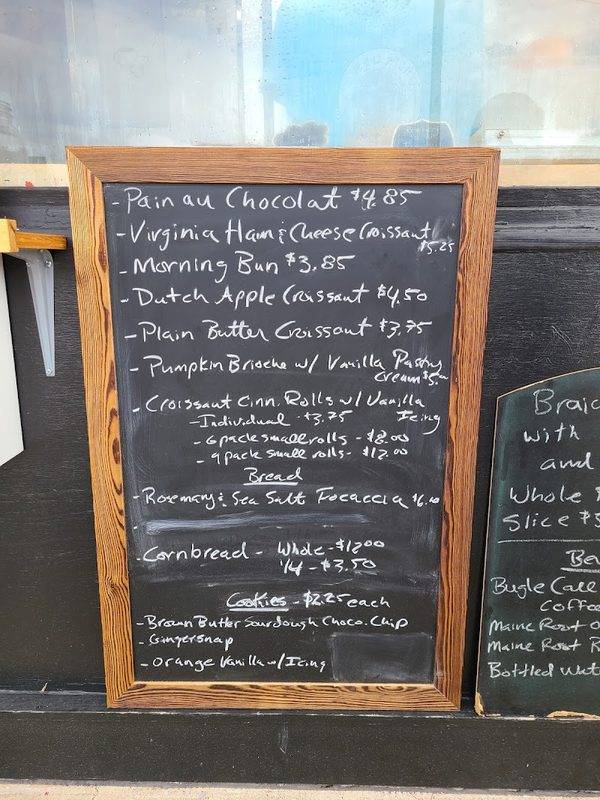 - Pain au Chocolat $4.85
- Virginia Ham & Cheese Croissant $5.25
- Morning Bun $3.85
- Dutch Apple Croissant $4.50
- Plain Butter Croissant $3.75
- Pumpkin Brioche w/ Vanilla Pastry
Cream $5.00
- Croissant Cinn. Rolls w/ Vanilla
Icing
- Individual - $3.75
- 6 pack small rolls - $8.00
- 9 pack small rolls - $12.00
Bread
- Rosemary & Sea Salt Focaccia $6.00
- Cornbread - Whole - $12.00
1/4 - $3.50
Cookies - $2.25 each
- Brown Butter Sourdough Choco. Chip
- Gingersnap
- Orange Vanilla w/ Icing
Braid
with
and
Whole
Slice $3
Bugle Call
Coffee
Maine Root
Maine Root R
Bottled Wat